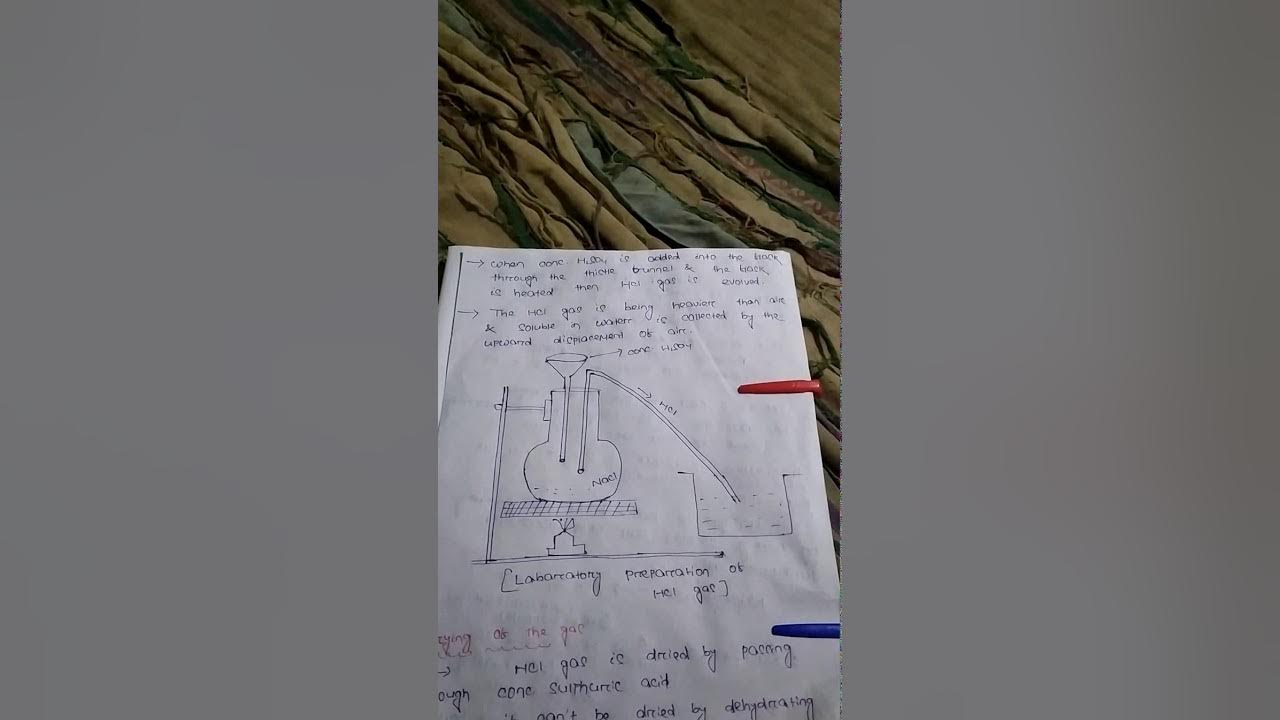 → When conc. H₂SO4 is added into the flask
through the thistle funnel & the flask
is heated then HCl gas is evolved.
→ The HCl gas is being heavier than air
& soluble in water is collected by the
upward displacement of air.
→ conc. H₂SO4
→ HCl
NaCl
[Labarratory preparration of
HCl gas]
rying of the gas
→ HCl gas is dried by passing
ough conc sulphuric acid
it can't be dried by dehydrating